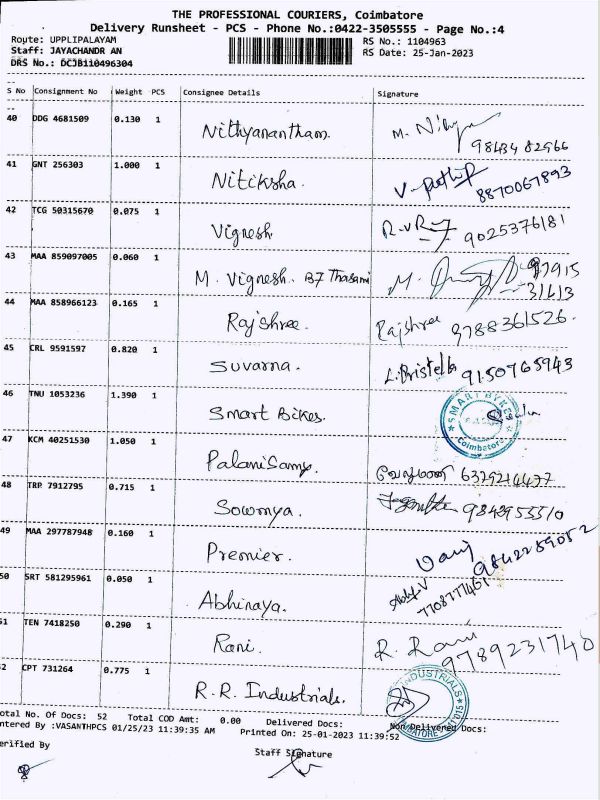 THE PROFESSIONAL COURIERS, Coimbatore
Delivery Runsheet - PCS - Phone No.:0422-3505555 - Page No.:4
Route: UPPLIPALAYAM
RS No.: 1104963
Staff: JAYACHANDR AN
RS Date: 25-Jan-2023
DRS No.: DCJB110496304
S No Consignment No Weight PCS Consignee Details Signature
40 DDG 4681509 0.130 1 Nithyanantham. M. 98434 82966
41 GNT 256303 1.000 1 Nitiksha. V- 8870067893
42 TCG 50315670 0.075 1 Vignesh 9025376181
43 MAA 859097005 0.060 1 M. Vignesh. B7 Thasami M. 97915
31413
44 MAA 858966123 0.165 1 Rajshree. Rajshree 9788361526.
45 CRL 9591597 0.820 1 Suvarna. 9150765943
46 TNU 1053236 1.390 1 Smart Bikes. SMART BYKES Coimbatore
47 KCM 40251530 1.050 1 PalaniSamy. வேலுமணி 6379214477
48 TRP 7912795 0.715 1 Sowmya. 9843955510
49 MAA 297787948 0.160 1 Premier. Vani 9842259052
50 SRT 581295961 0.050 1 Abhinaya. 7708777467
51 TEN 7418250 0.290 1 Rani. R. Rani 9789231740
52 CPT 731264 0.775 1 R.R. Industrials. INDUSTRIALS
Total No. Of Docs: 52 Total COD Amt: 0.00 Delivered Docs: Non Delivered Docs:
Entered By :VASANTHPCS 01/25/23 11:39:35 AM Printed On: 25-01-2023 11:39:52
Verified By Staff Signature